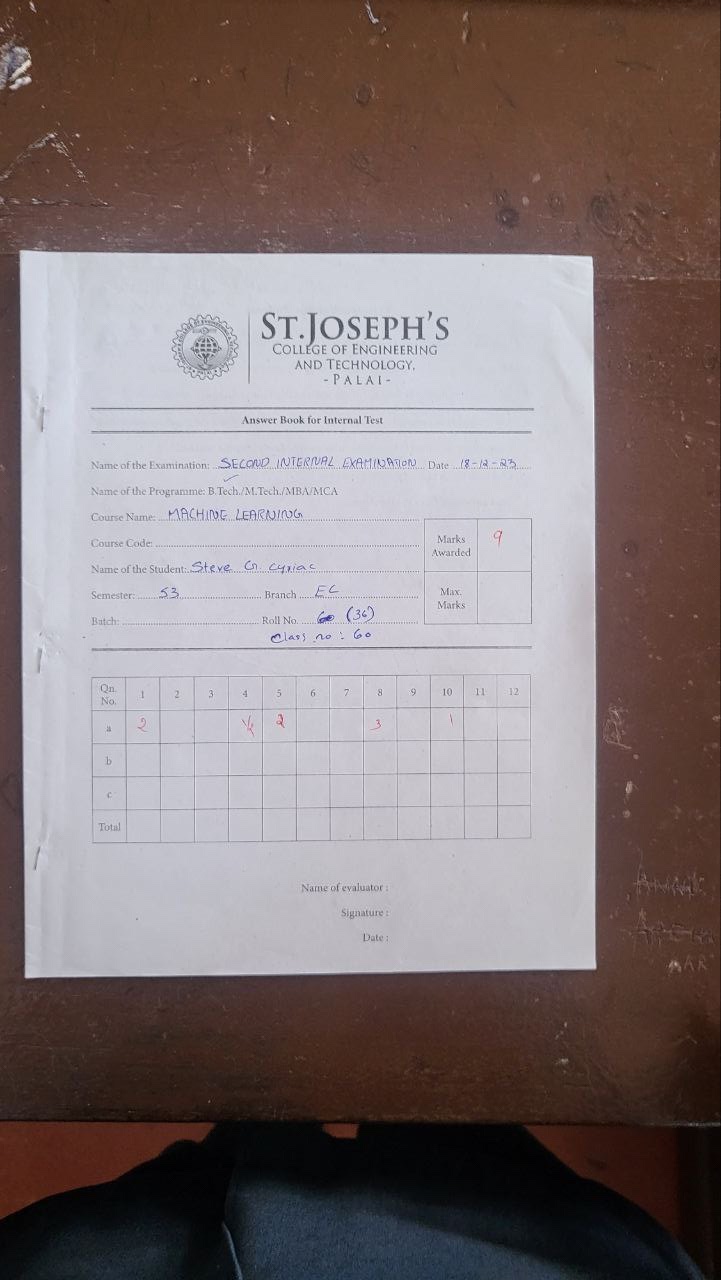 ST.JOSEPH'S
COLLEGE OF ENGINEERING
AND TECHNOLOGY,
- PALAI -
Answer Book for Internal Test
Name of the Examination: SECOND INTERNAL EXAMINATION Date 18-12-23
Name of the Programme: B.Tech./M.Tech./MBA/MCA
Course Name: MACHINE LEARNING
Course Code:
Marks Awarded 9
Name of the Student: Steve G. Cyriac
Semester: S3 Branch EC
Max. Marks
Batch: Roll No. (36)
Class no : 60
Qn. No. 1 2 3 4 5 6 7 8 9 10 11 12
a 2 ½ 2 3 1
b
c
Total
Name of evaluator :
Signature :
Date :